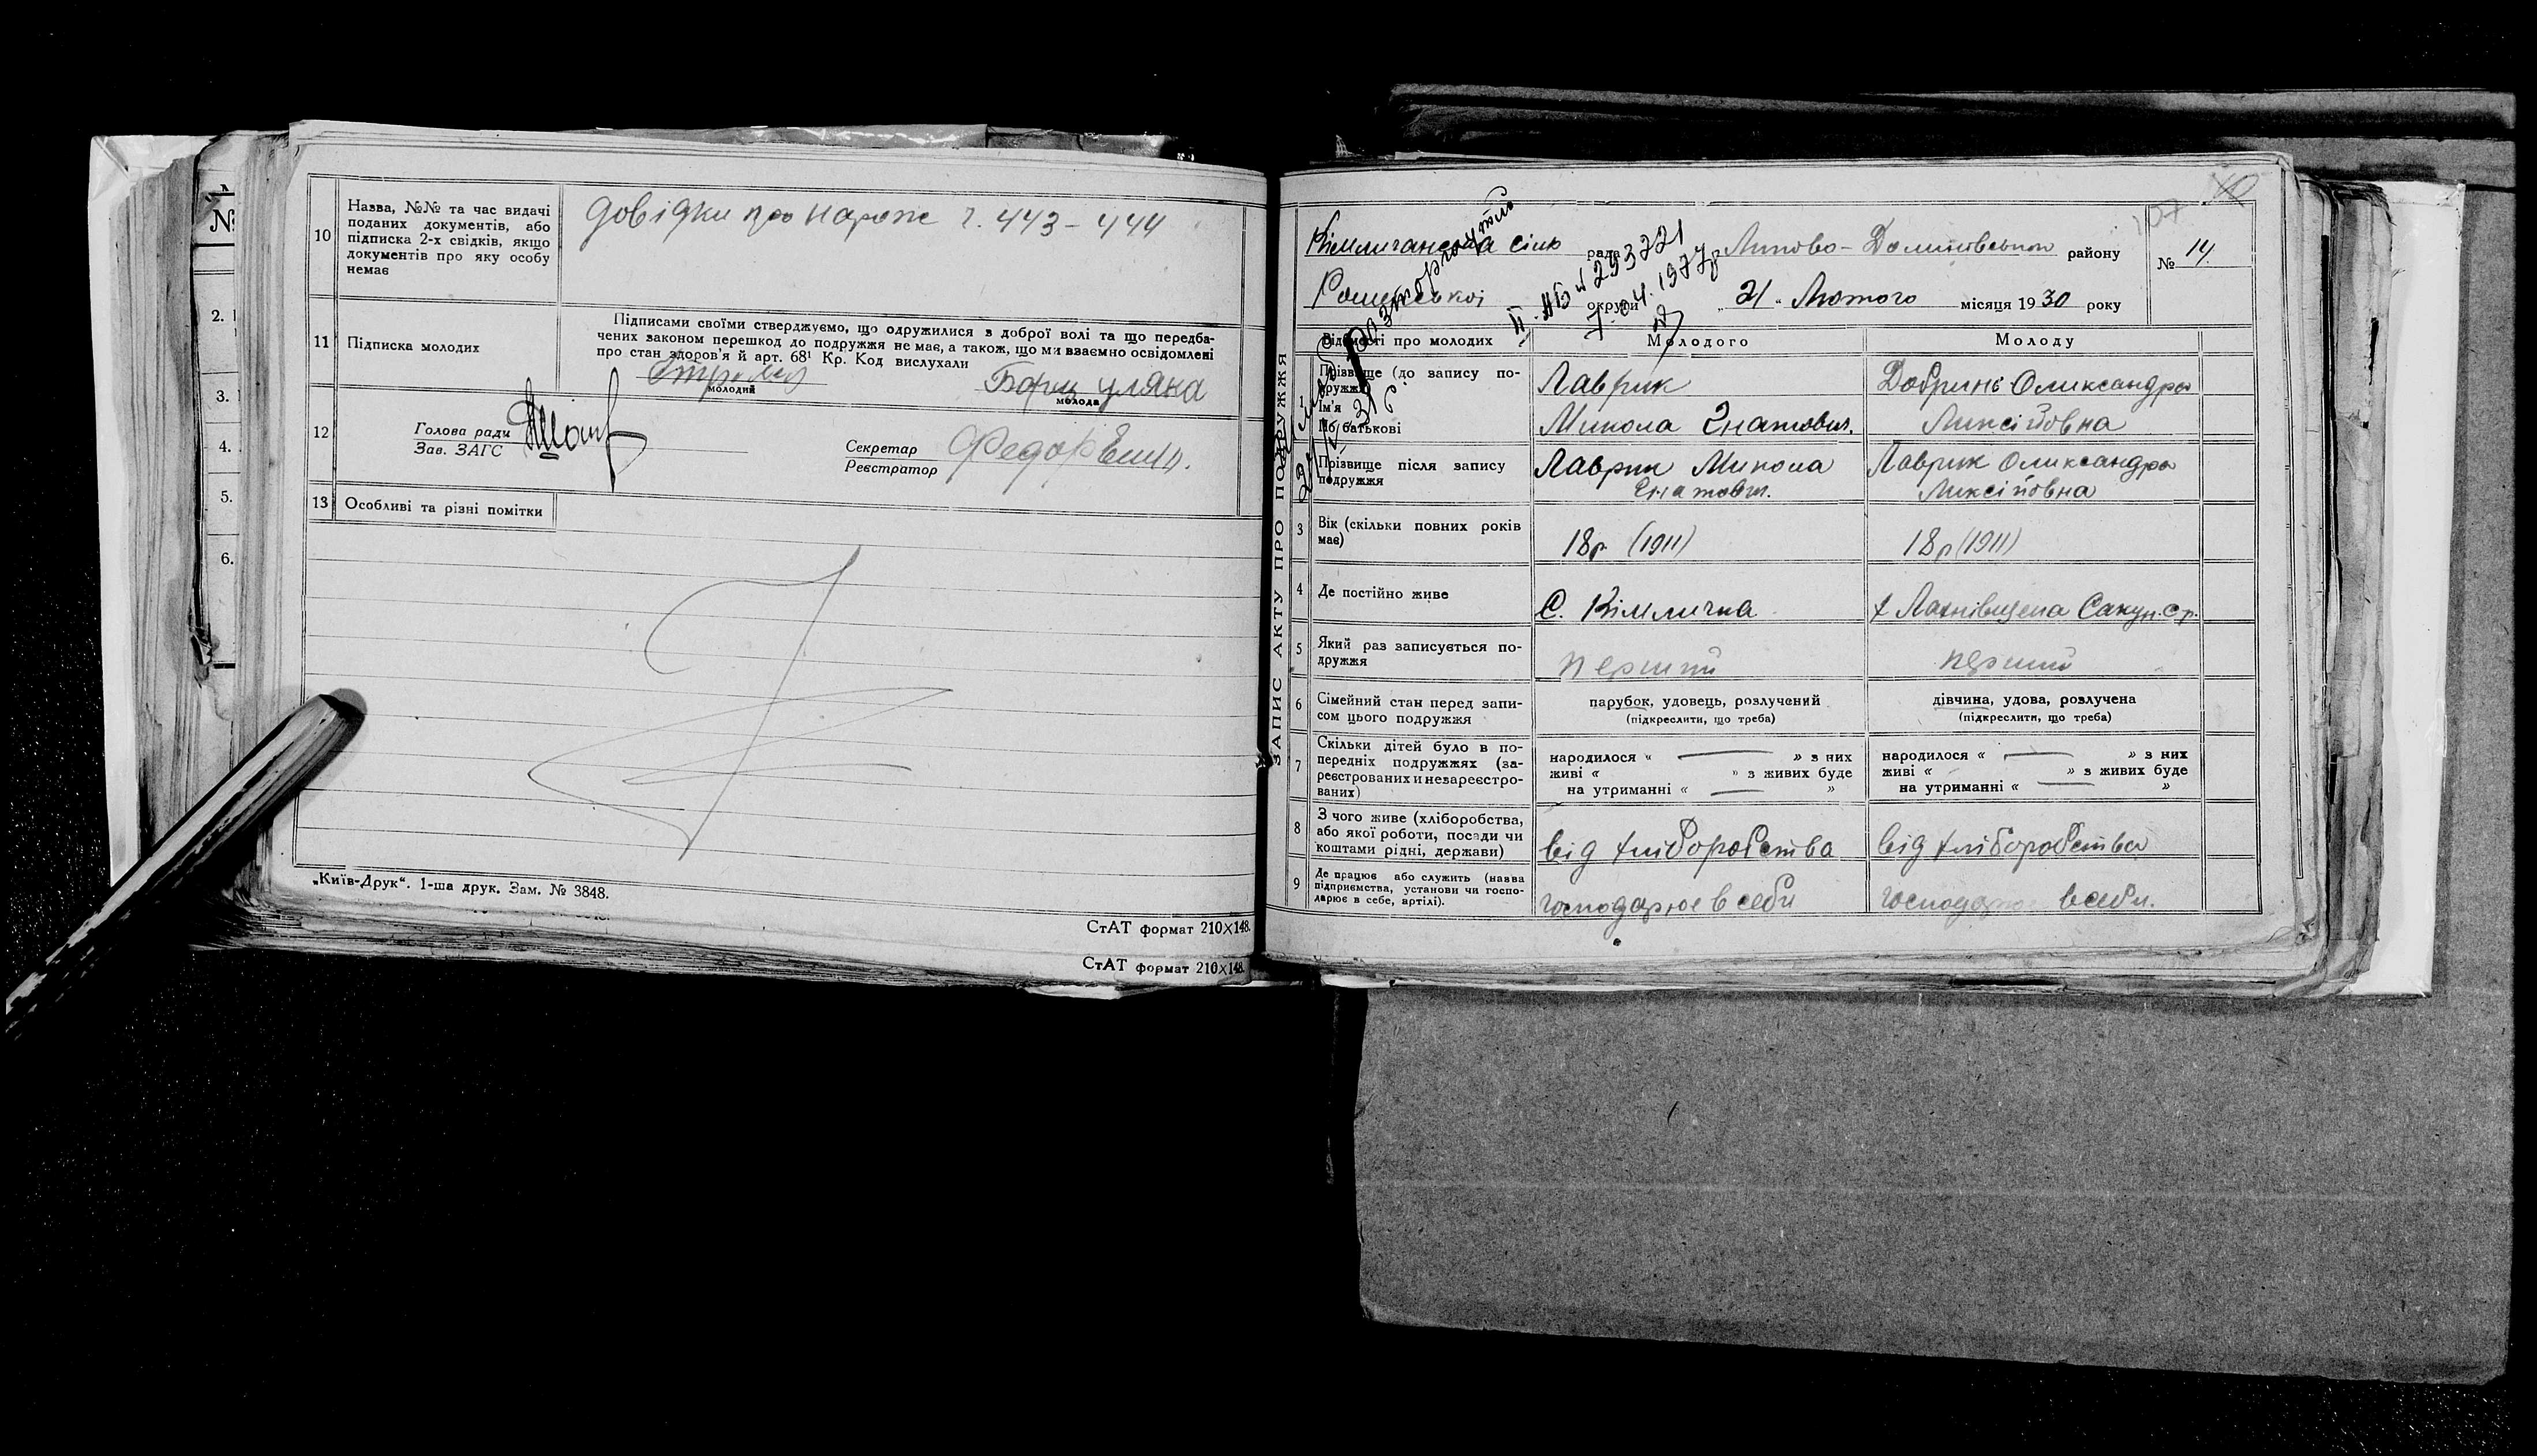 10
Назва, №№ та час видачі
поданих документів, або
підписка 2-х свідків, якщо
документів про яку особу
немає
Довідки про нарож ч. 443 - 444
11
Підписка молодих
Підписами своїми стверджуємо, що одружилися з доброї волі та що передба-
чених законом перешкод до подружжя не має, а також, що ми взаємно освідомлені
про стан здоров'я й арт. 68¹ Кр. Код вислухали
молодий
Борщ Уляна
молода
12
Голова ради
Зав. ЗАГС
Секретар
Реєстратор
13
Особливі та різні помітки
„Київ-Друк“. 1-ша друк. Зам. № 3848.
СтАТ формат 210×148.
СтАТ формат 210×148.
№
2.
3.
4.
5.
6.
ЗАПИС АКТУ ПРО ПОДРУЖЖЯ
107
сіль рада Липово-Долинської району
№ 14.
Роменської округи „21“ Лютого місяця 1930 року
розторгнуто
ІІ-АБ № 293721
7.04.1977р
Відомості про молодих
Молодого
Молоду
1
Прізвище (до запису по-
дружжя)
Ім'я
По батькові
Лаврик
Микола Гнатович.
Добринь Олександра
Ликсіївна
Прізвище після запису
подружжя
Лаврик Микола
Гнатович.
Лаврик Олександра
Ликсіївна
3
Вік (скільки повних років
має)
18р. (1911)
18р (1911)
4
Де постійно живе
С. Кімличка
5
Який раз записується по-
дружжя
перший
перший
6
Сімейний стан перед запи-
сом цього подружжя
парубок, удовець, розлучений
(підкреслити, що треба)
дівчина, удова, розлучена
(підкреслити, що треба)
7
Скільки дітей було в по-
передніх подружжях (за-
реєстрованих и незареєстро-
ваних)
народилося « — » з них
живі « » з живих буде
на утриманні « — »
народилося « — » з них
живі « » з живих буде
на утриманні « — »
8
З чого живе (хліборобства,
або якої роботи, посади чи
коштами рідні, держави)
від хліборобства
від хліборобства
9
Де працює або служить (назва
підприємства, установи чи госпо-
дарює в себе, артілі).
господарює в себи
господарює в себи.